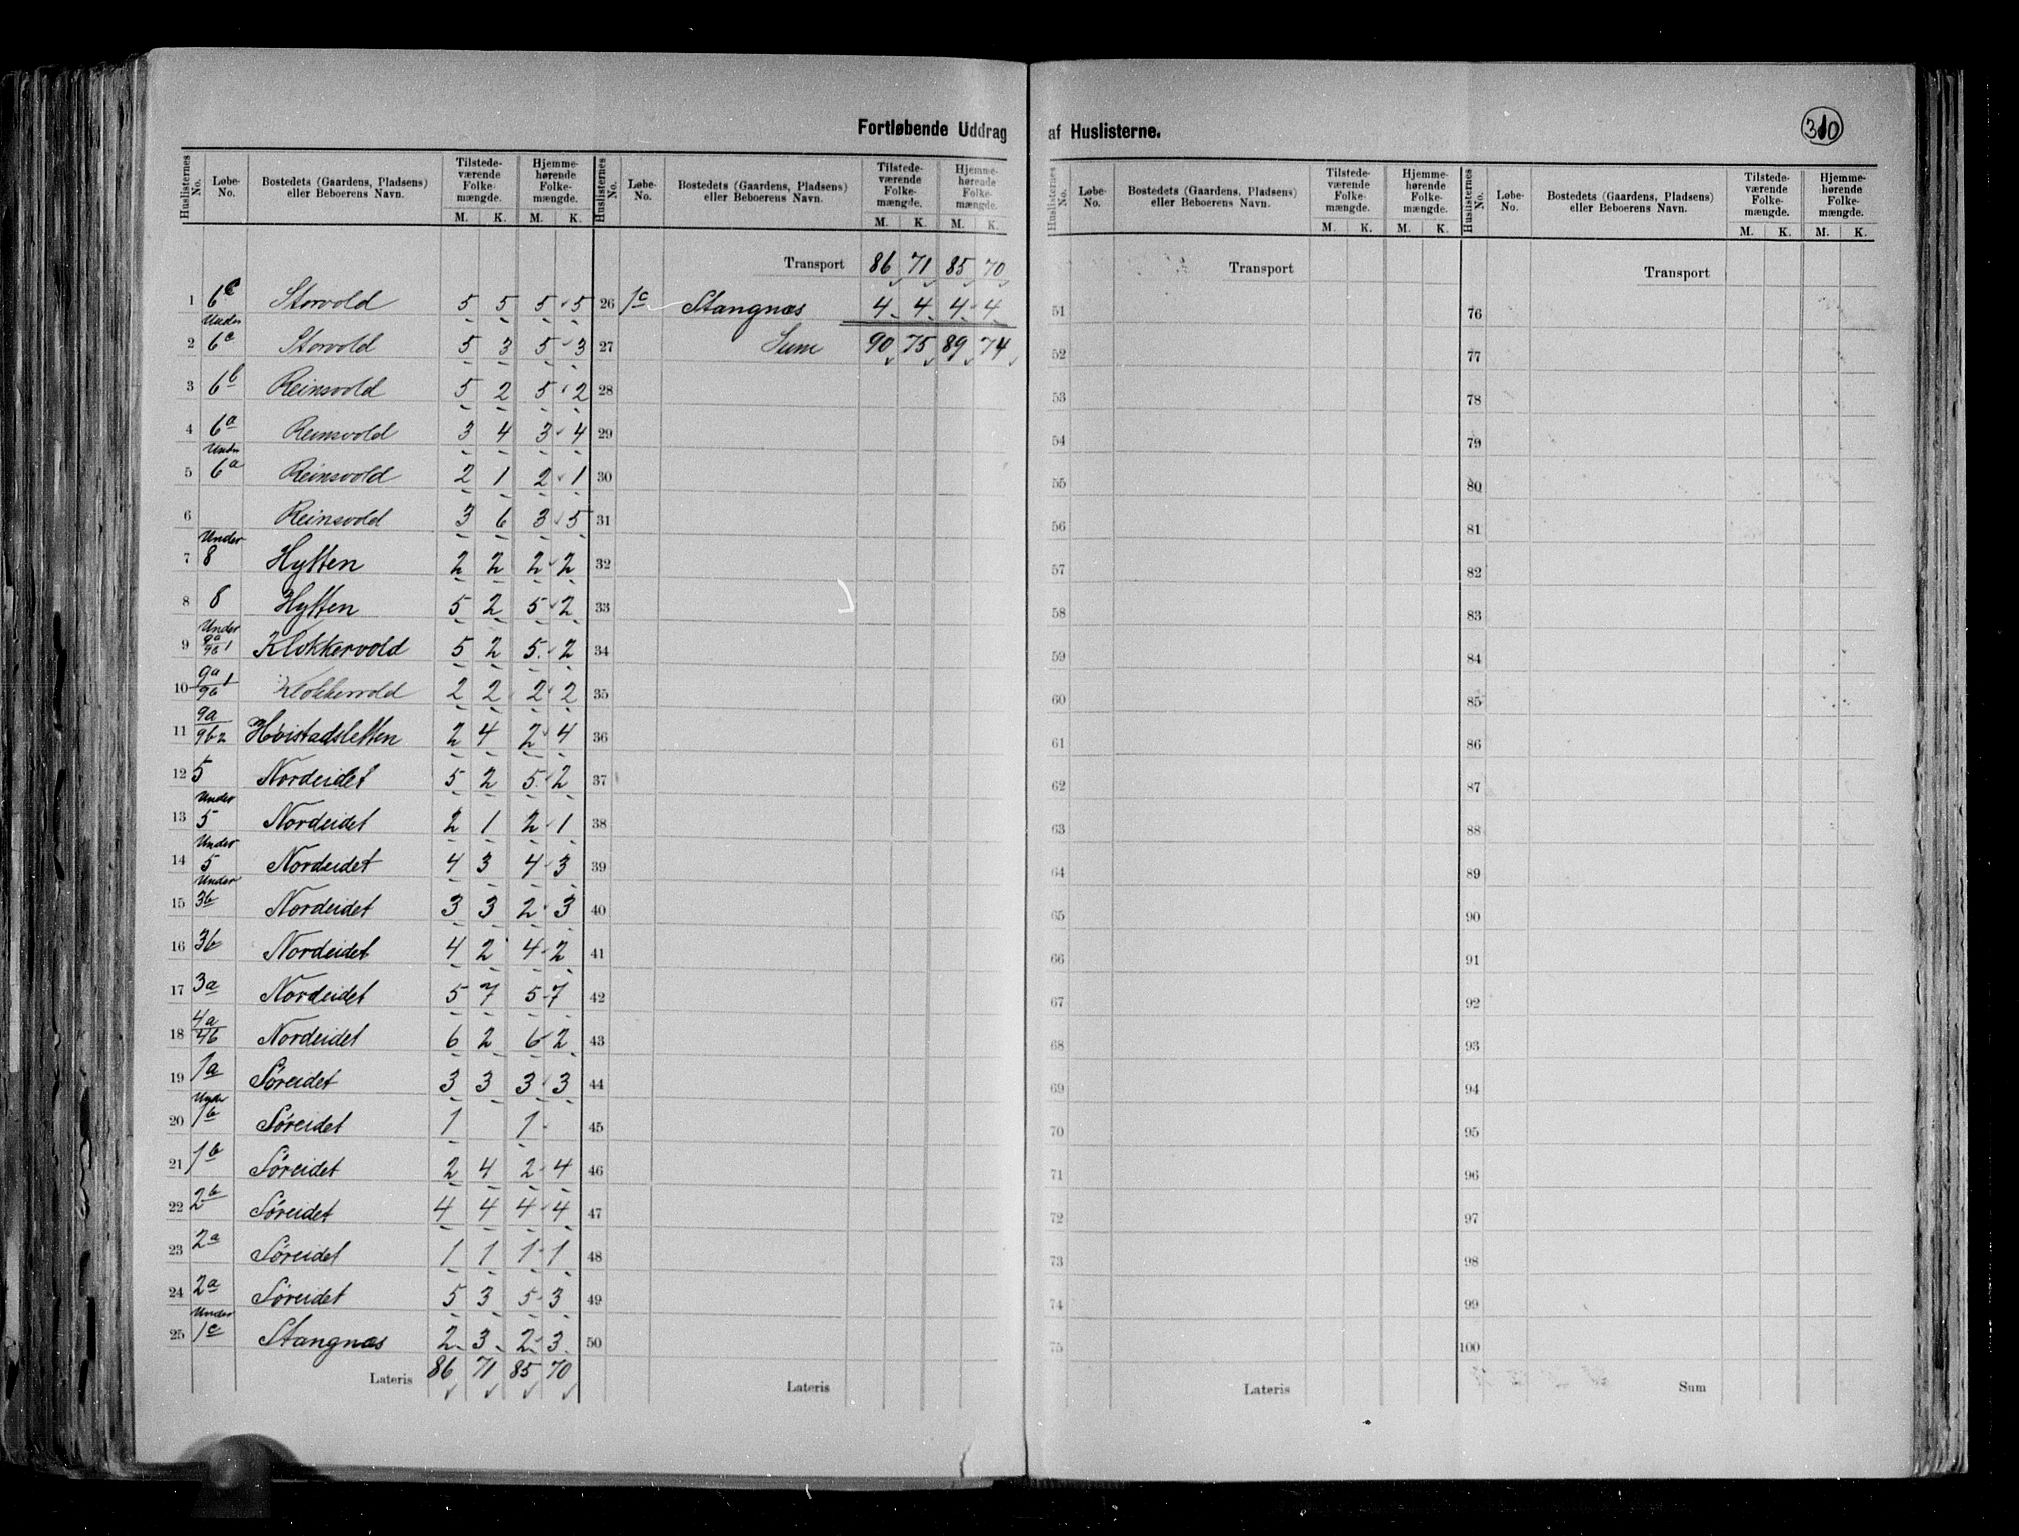 Fortløbende Uddrag af Huslisterne.
310
Huslisternes No. | Løbe-No. | Bostedets (Gaardens, Pladsens) eller Beboerens Navn. | Tilstedeværende Folkemængde. M. K. | Hjemmehørende Folkemængde. M. K.
1 6c Storvold 5 5 5 5
2 Under 6c Storvold 5 3 5 3
3 6b Reinsvold 5 2 5 2
4 6a Reinsvold 3 4 3 4
5 Under 6a Reinsvold 2 1 2 1
6 Reinsvold 3 6 3 5
7 Under 8 Hytten 2 2 2 2
8 8 Hytten 5 2 5 2
9 Under 9a/9b1 Klokkervold 5 2 5 2
10 9a/9b1 Klokkervold 2 2 2 2
11 9a/9b2 Høistadsletten 2 4 2 4
12 5 Nordeidet 5 2 5 2
13 Under 5 Nordeidet 2 1 2 1
14 Under 5 Nordeidet 4 3 4 3
15 Under 3b Nordeidet 3 3 2 3
16 3b Nordeidet 4 2 4 2
17 3a Nordeidet 5 7 5 7
18 4a/4b Nordeidet 6 2 6 2
19 1a Søreidet 3 3 3 3
20 Under 1b Søreidet 1 1
21 1b Søreidet 2 4 2 4
22 2b Søreidet 4 4 4 4
23 2a Søreidet 1 1 1 1
24 2a Søreidet 5 3 5 3
25 Under 1c Stangnæs 2 3 2 3
Lateris 86 71 85 70
Huslisternes No. | Løbe-No. | Bostedets (Gaardens, Pladsens) eller Beboerens Navn. | Tilstedeværende Folkemængde. M. K. | Hjemmehørende Folkemængde. M. K.
Transport 86 71 85 70
26 1c Stangnæs 4 4 4 4
27 Sum 90 75 89 74
28
29
30
31
32
33
34
35
36
37
38
39
40
41
42
43
44
45
46
47
48
49
50
Lateris
Huslisternes No. | Løbe-No. | Bostedets (Gaardens, Pladsens) eller Beboerens Navn. | Tilstedeværende Folkemængde. M. K. | Hjemmehørende Folkemængde. M. K.
Transport
51
52
53
54
55
56
57
58
59
60
61
62
63
64
65
66
67
68
69
70
71
72
73
74
75
Lateris
Huslisternes No. | Løbe-No. | Bostedets (Gaardens, Pladsens) eller Beboerens Navn. | Tilstedeværende Folkemængde. M. K. | Hjemmehørende Folkemængde. M. K.
Transport
76
77
78
79
80
81
82
83
84
85
86
87
88
89
90
91
92
93
94
95
96
97
98
99
100
Sum